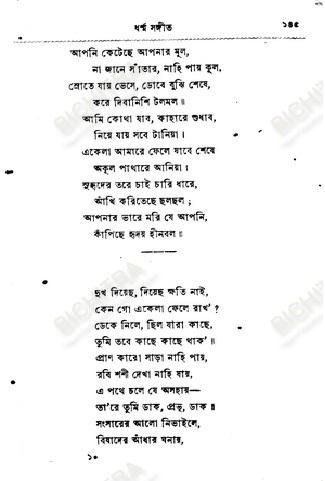 ধর্ম্ম সঙ্গীত ১৪৫
আপনি কেটেছে আপনার মূল,
না জানে সাঁতার, নাহি পায় কূল,
স্রোতে যায় ভেসে, ডোবে বুঝি শেষে,
করে দিবানিশি টলমল॥
আমি কোথা যাব, কাহারে শুধাব,
নিয়ে যায় সবে টানিয়া।
একেলা আমারে ফেলে যাবে শেষে
অকূল পাথারে আনিয়া।
সুহৃদের তরে চাই চারি ধারে,
আঁখি করিতেছে ছলছল;
আপনার ভারে মরি যে আপনি,
কাঁপিছে হৃদয় হীনবল॥
দুখ দিয়েছ, দিয়েছ ক্ষতি নাই,
কেন গো একেলা ফেলে রাখ'?
ডেকে নিলে, ছিল যারা কাছে,
তুমি তবে কাছে কাছে থাক'॥
প্রাণ কারো সাড়া নাহি পায়,
রবি শশী দেখা নাহি যায়,
এ পথে চলে যে অসহায়—
তা'রে তুমি ডাক, প্রভু, ডাক॥
সংসারের আলো নিভাইলে,
বিষাদের আঁধার ঘনায়,
১০
BICHITRA